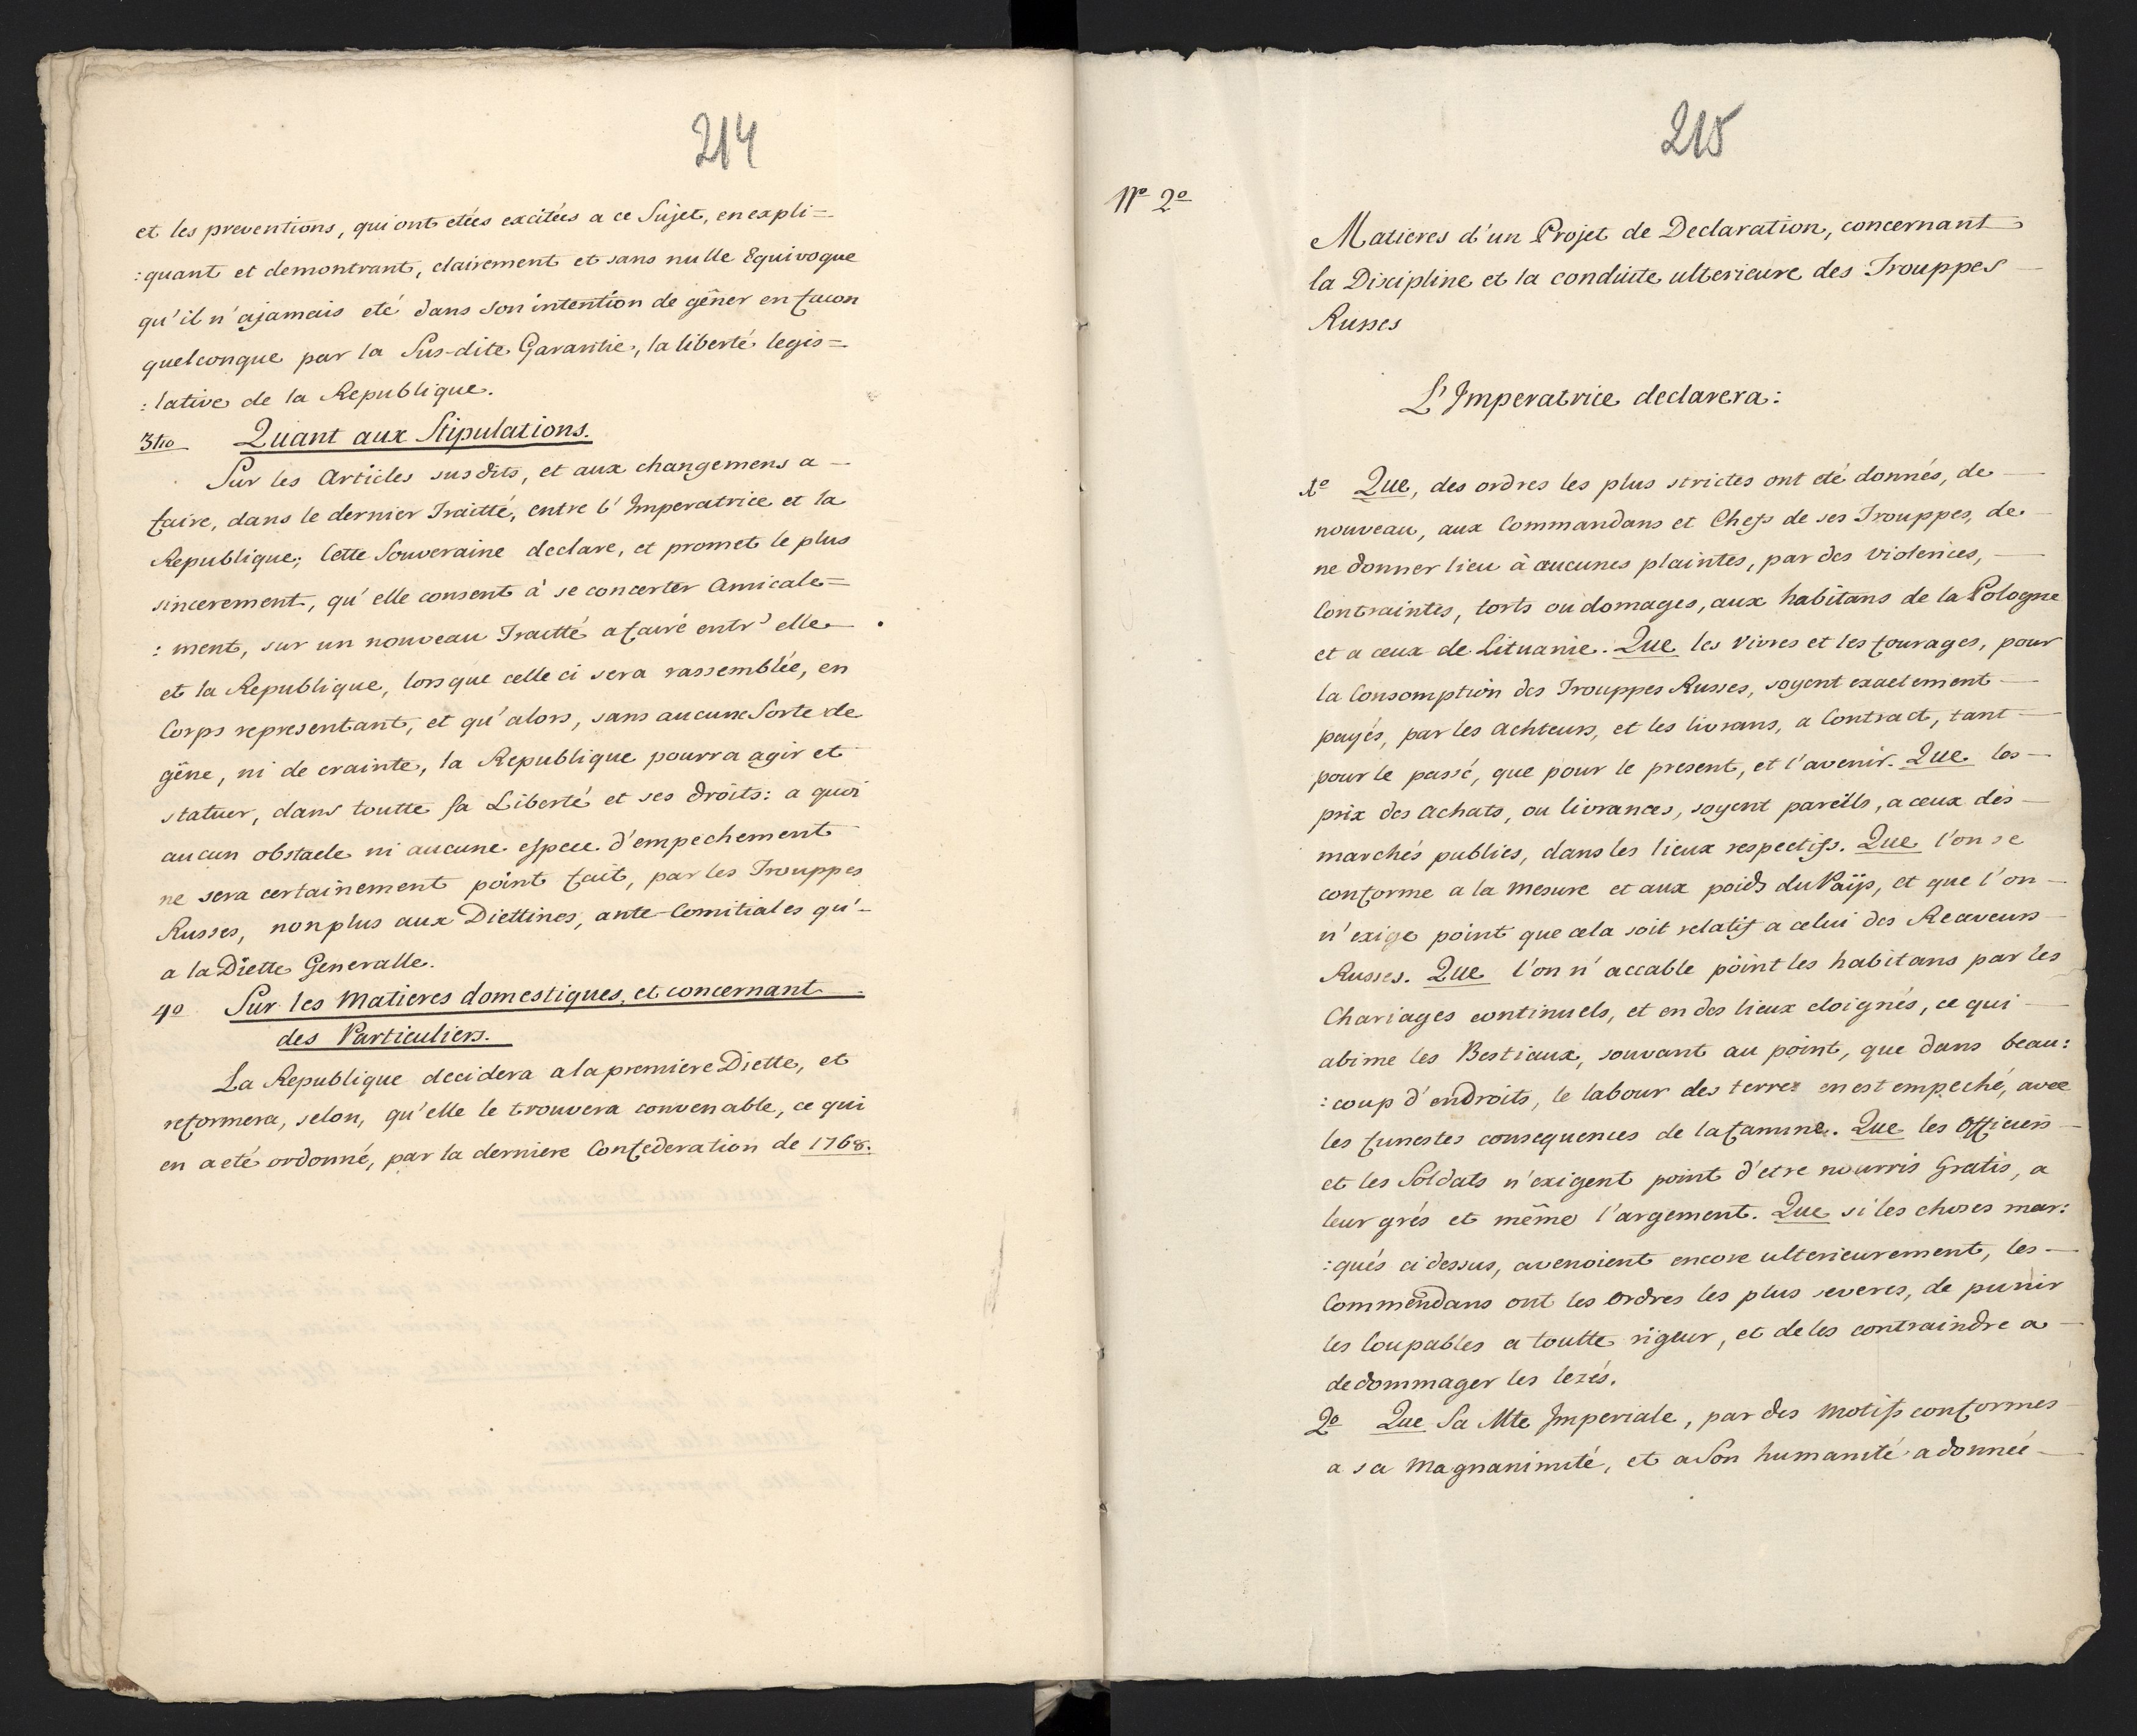 214
et les preventions, qui ont etées excitées a ce Sujet, en expli=
:quant et demontrant, clairement et sans nulle Equivoque
qu'il n'a jamais eté dans son intention de gêner en facon
quelconque par la Sus-dite Garantie, la liberté legis=
:lative de la Republique.
3tio Quant aux Stipulations.
Sur les Articles susdits, et aux changemens a —
faire, dans le dernier Traitté, entre l'Imperatrice et la
Republique; Cette Souveraine declare, et promet le plus
sincerement, qu'elle consent à se concerter Amicale=
:ment, sur un nouveau Traitté a faire entr'elle
et la Republique, lorsque celle ci sera rassemblée, en
Corps representant, et qu'alors, sans aucune Sorte de
gêne, ni de crainte, la Republique pourra agir et
statuer, dans toutte sa Liberté et ses droits: a quoi
aucun obstacle ni aucune espece d'empechement
ne sera certainement point fait, par les Trouppes
Russes, non plus aux Diettines, ante-Comitiales qu'-
a la Diette Generalle.
4o Sur les Matieres domestiques, et concernant
des Particuliers.
La Republique decidera a la premiere Diette, et
reformera, selon, qu'elle le trouvera convenable, ce qui
en a eté ordonné, par la derniere Confederation de 1768.
215
No 2o
Matieres d'un Projet de Declaration, concernant
la Discipline et la conduite ulterieure des Trouppes —
Russes
L'Imperatrice declarera:
1o Que, des ordres les plus strictes ont eté donnés, de —
nouveau, aux Commandans et Chefs de ses Trouppes, de —
ne donner lieu à aucunes plaintes, par des violences, —
Contraintes, torts ou domages, aux habitans de la Pologne
et a ceux de Lituanie. Que les vivres et les fourages, pour
la Consomption des Trouppes Russes, soyent exactement —
payés, par les Achteurs, et les livrans, a Contract, tant —
pour le passé, que pour le present, et l'avenir. Que les —
prix des Achats, ou livrances, soyent pareills, a ceux des —
marchés publics, dans les lieux respectifs. Que l'on se
conforme a la Mesure et aux poids du Païs, et que l'on —
n'exige point que cela soit relatif a celui des Receveurs —
Russes. Que l'on n'accable point les habitans par les
Chariages continuels, et en des lieux eloignés, ce qui —
abime les Bestiaux, souvant au point, que dans beau:
:coup d'endroits, le labour des terres en est empeché, avec
les funestes consequences de la famine. Que les Officiers —
et les Soldats n'exigent point d'etre nourris Gratis, a
leur grés et même l'argement. Que si les choses mar:
:qués ci dessus, avenoient encore ulterieurement, les —
Commendans ont les Ordres les plus severes, de punir
les Coupables a toutte rigeur, et de les contraindre a —
dedommager les lezés.
2o Que Sa Mte Imperiale, par des Motifs conformes —
a sa Magnanimité, et a Son humanité a donnée —